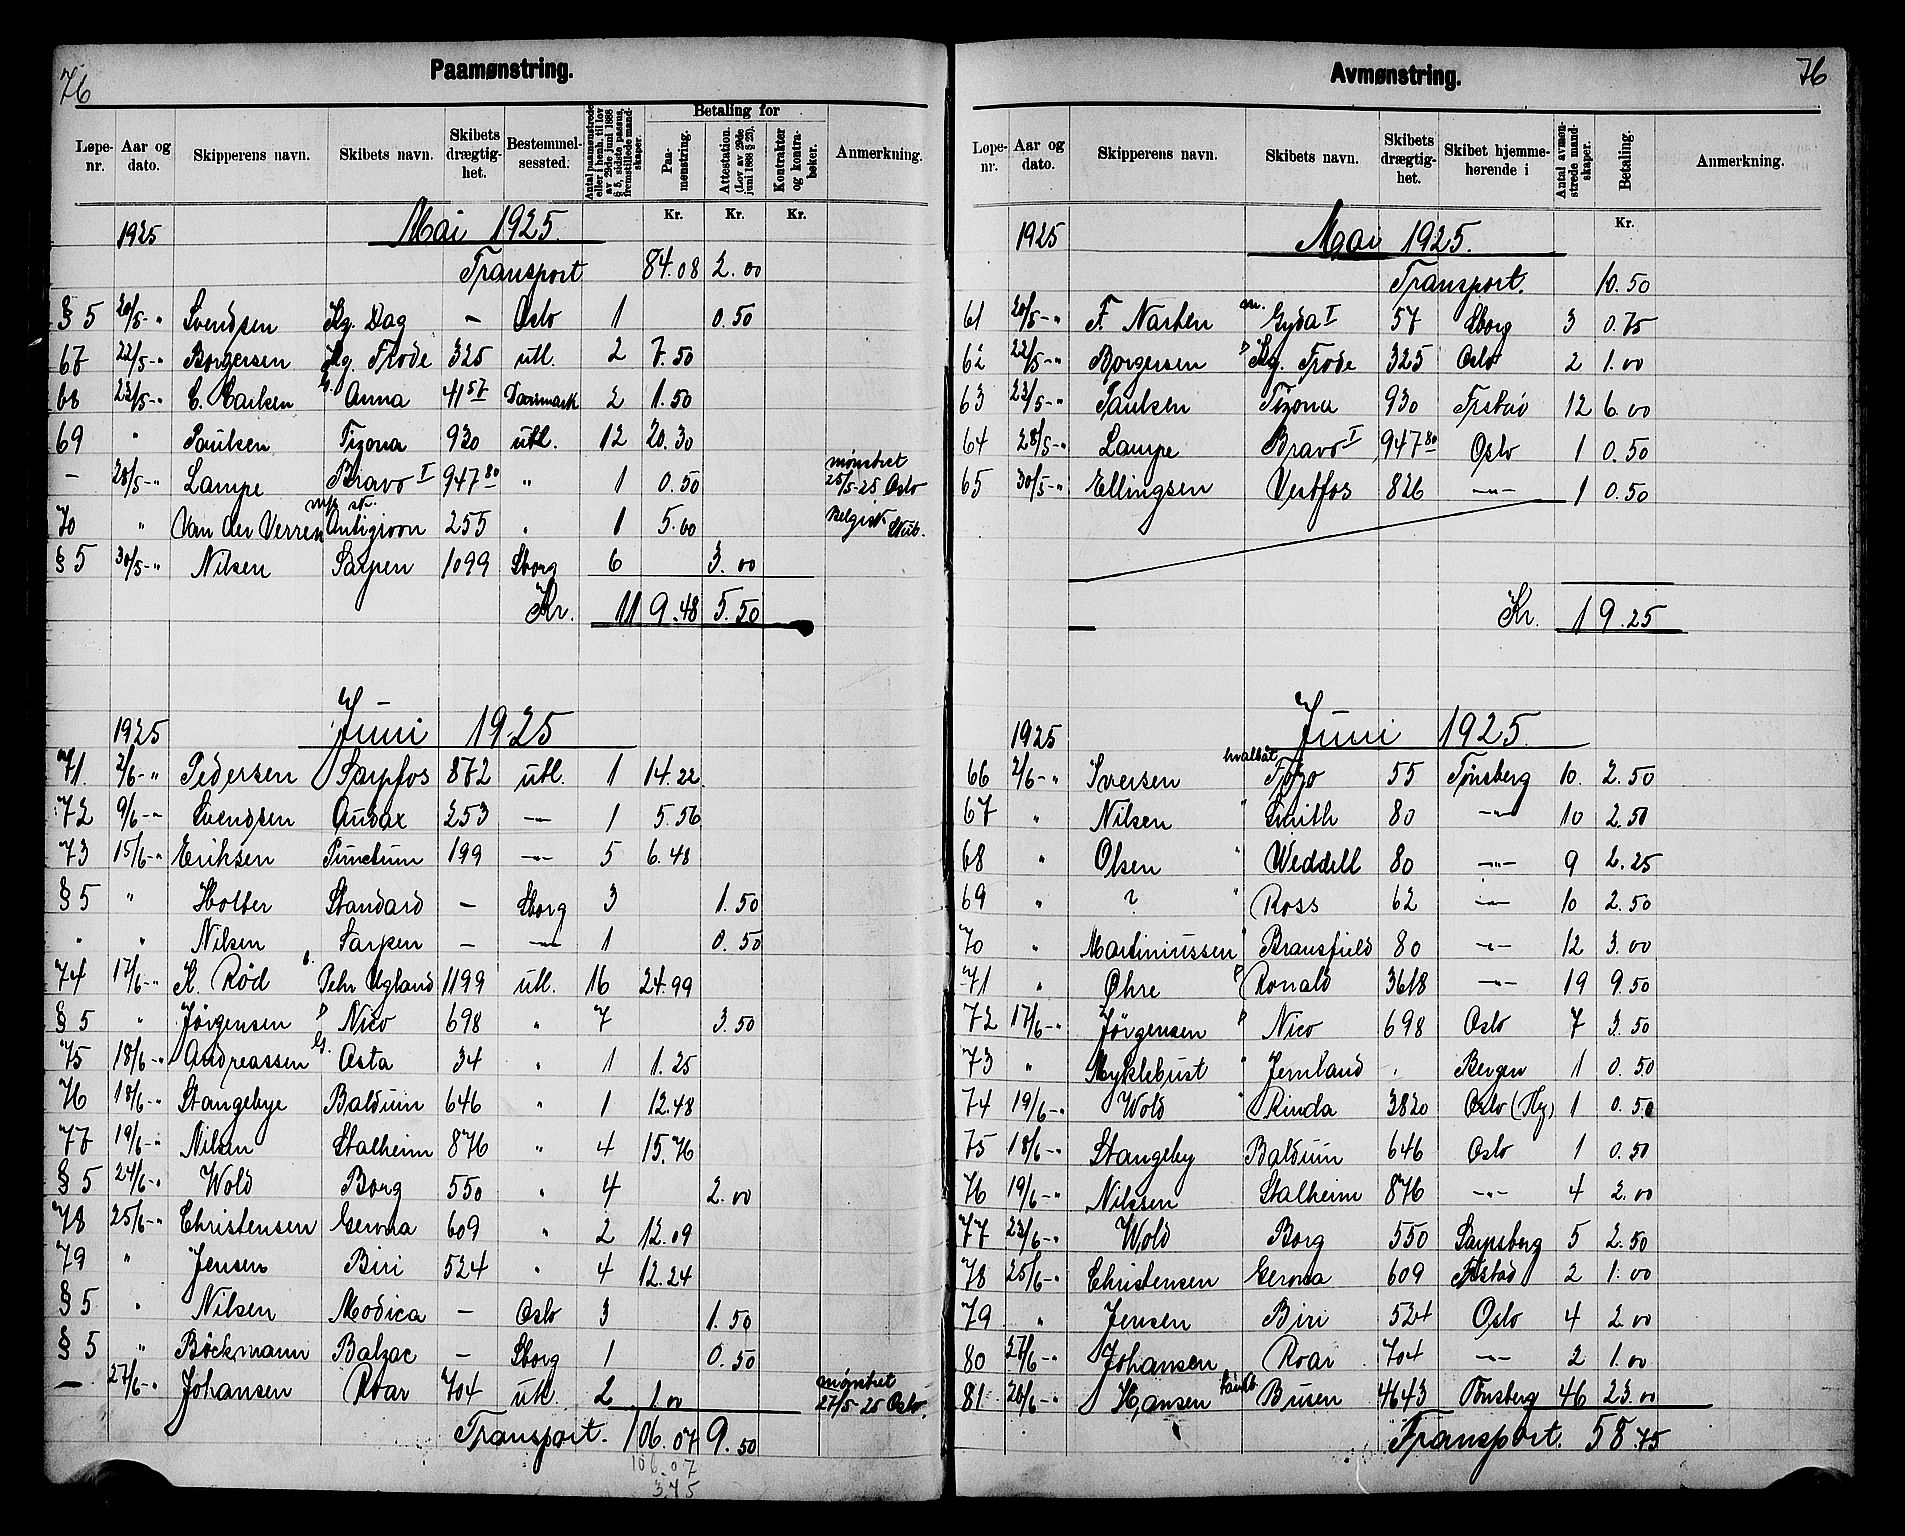 76
Paamønstring.
Løpe-nr. Aar og dato. Skipperens navn. Skibets navn. Skibets drægtig-het. Bestemmel-sessted. Antal paamønstrede eller i henh. til lov av 29de juni 1888 § 5, sidste passus, fremstillede mand-skaper. Betaling for Paa-mønstring. Attestation. (Lov av 29de juni 1888 § 29). Kontrakter og kontra-bøker. Anmerkning.
Kr. Kr. Kr.
1925 Mai 1925.
Transport 84.08 2.00
§ 5 20/5-" Svendsen Kg. Dag - Oslo 1 0.50
67 22/5-" Borgersen Kg. Frode 325 utl. 2 7.50
68 23/5-" C. Carlsen G. Anna 41 57 Danmark 2 1.50
69 " Paulsen Tizona 930 utl. 12 20.30
- 28/5-" Lampe Bravo I 947 80 " 1 0.50 mønstret 25/5-25 Oslo
70 " Van der Verren Antigoon 255 " 1 5.00 Belgisk
§ 5 30/5-" Nilsen Sarpen 1099 Sborg 6 3.00
Kr. 119.48 5.50
1925 Juni 1925
71. 2/6-" Pedersen Sarpfos 872 utl. 1 14.22
72 9/6-" Svendsen Audax 253 -"- 1 5.56
73 15/6-" Eriksen Punctum 199 -"- 5 6.48
§ 5 " Holter Standard - Sborg 3 1.50
" " Nilsen Sarpen - -"- 1 0.50
74 17/6-" K. Rød Pehr Ugland 1199 utl. 16 24.99
§ 5 " Jørgensen D Nico 698 " 7 3.50
75 18/6-" Andreassen G. Asta 34 " 1 1.25
76 18/6-" Stangebye Balduin 646 " 1 12.48
77 19/6-" Nilsen Stalheim 876 " 4 15.76
§ 5 24/6-" Wold Borg 550 " 4 2.00
78 25/6-" Christensen Gerona 609 " 2 12.09
79 " Jensen Biri 524 " 4 12.24
§ 5 " Nilsen Modica - Oslo 3 1.50
§ 5 " Böckmann Balzac - Sborg 1 0.50
- 27/6-" Johansen Roar 704 utl. 2 1.00 mønstret 27/5-25 Oslo.
Transport. 106.07 9.50
106.07
3.75
76
Avmønstring.
Løpe-nr. Aar og dato. Skipperens navn. Skibets navn. Skibets drægtig-het. Skibet hjemme-hørende i Antal avmøn-strede mand-skaper. Betaling. Anmerkning.
Kr.
1925 Mai 1925.
Transport. 10.50
61 20/5-" F. Narten m. Gyda I 57 Sborg 3 0.75
62 22/5-" Borgersen D Kg. Frode 325 Oslo 2 1.00
63 23/5-" Paulsen Tizona 930 Frstad 12 6.00
64 28/5-" Lampe Bravo I 947 80 Oslo 1 0.50
65 30/5-" Ellingsen Vestfos 826 -"- 1 0.50
Kr. 19.25
1925 Juni 1925.
66 2/6-" Iversen hvalbåt Tojo 55 Tønsberg 10. 2.50
67 " Nilsen " Smith 80 -"- 10 2.50
68 " Olsen " Weddell 80 -"- 9 2.25
69 " ? " Ross 62 -"- 10 2.50
70 " Martiniussen " Bransfield 80 -"- 12 3.00
71 " Øhre D Ronald 3618 -"- 19 9.50
72 17/6-" Jörgensen D Nico 698 Oslo 7 3.50
73 " Myklebust " Jernland . Bergen 1 0.50
74 19/6-" Wold " Rinda 3820 Oslo 1 0.50
75 18/6-" Stangeby Balduin 646 Oslo 1 0.50
76 19/6-" Nilssen Stalheim 876 -"- 4 2.00
77 23/6-" Wold Borg 550 Sarpsborg 5 2.50
78 25/6-" Christensen Gerona 609 Fstad 2 1.00
79 " Jensen Biri 524 Oslo 4 2.00
80 27/6-" Johansen Roar 704 -"- 2 1.00
81 28/6-" Hansen Busen 4643 Tønsberg 46 23.00
Transport. 58.75